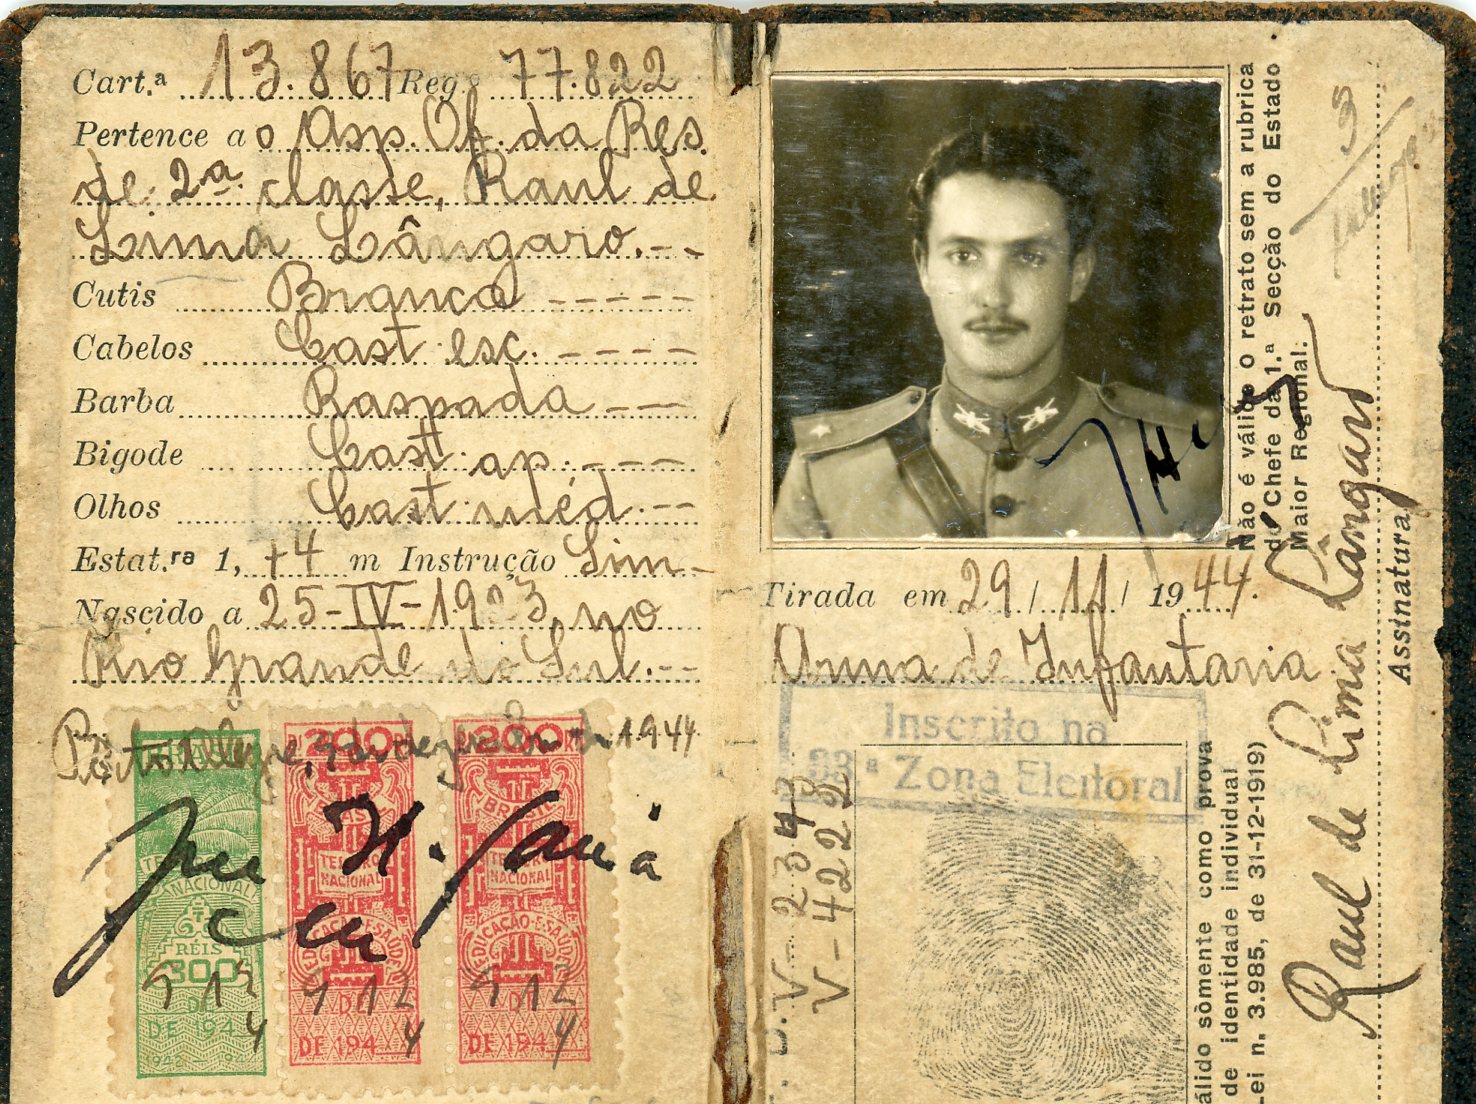 Cart.ª 13.867 Reg.º 77.822
Pertence a o Asp. Of. da Res.
de 2ª classe, Raul de
Lima Lângaro.--
Cutis Branca -----
Cabelos Cast. esc. ----
Barba Raspada ---
Bigode Cast. ap. ----
Olhos Cast. méd. --
Estat.ʳᵃ 1,74 m Instrução Sim-
Nascido a 25-IV-1923, no
Rio Grande do Sul.--
Porto Alegre, 9 de dezembro de 1944
300
RÉIS
300
DE
DE 194
200
BRASIL
TESOURO
NACIONAL
EDUCAÇÃO E SAÚDE
DE
DE 194
200
BRASIL
TESOURO
NACIONAL
EDUCAÇÃO E SAÚDE
DE
DE 194
9 12 4
9 12 4
9 12 4
Não é válido o retrato sem a rubrica
do Chefe da 1.ª Secção do Estado
Maior Regional.
Tirada em 29 / 11 / 1944.
Arma de Infantaria.
Inscrito na
ª Zona Eleitoral
V - 4222 2
álido sòmente como prova
de identidade individual
Lei n. 3.985, de 31-12-1919)
Raul de Lima Lângaro
Assinatura